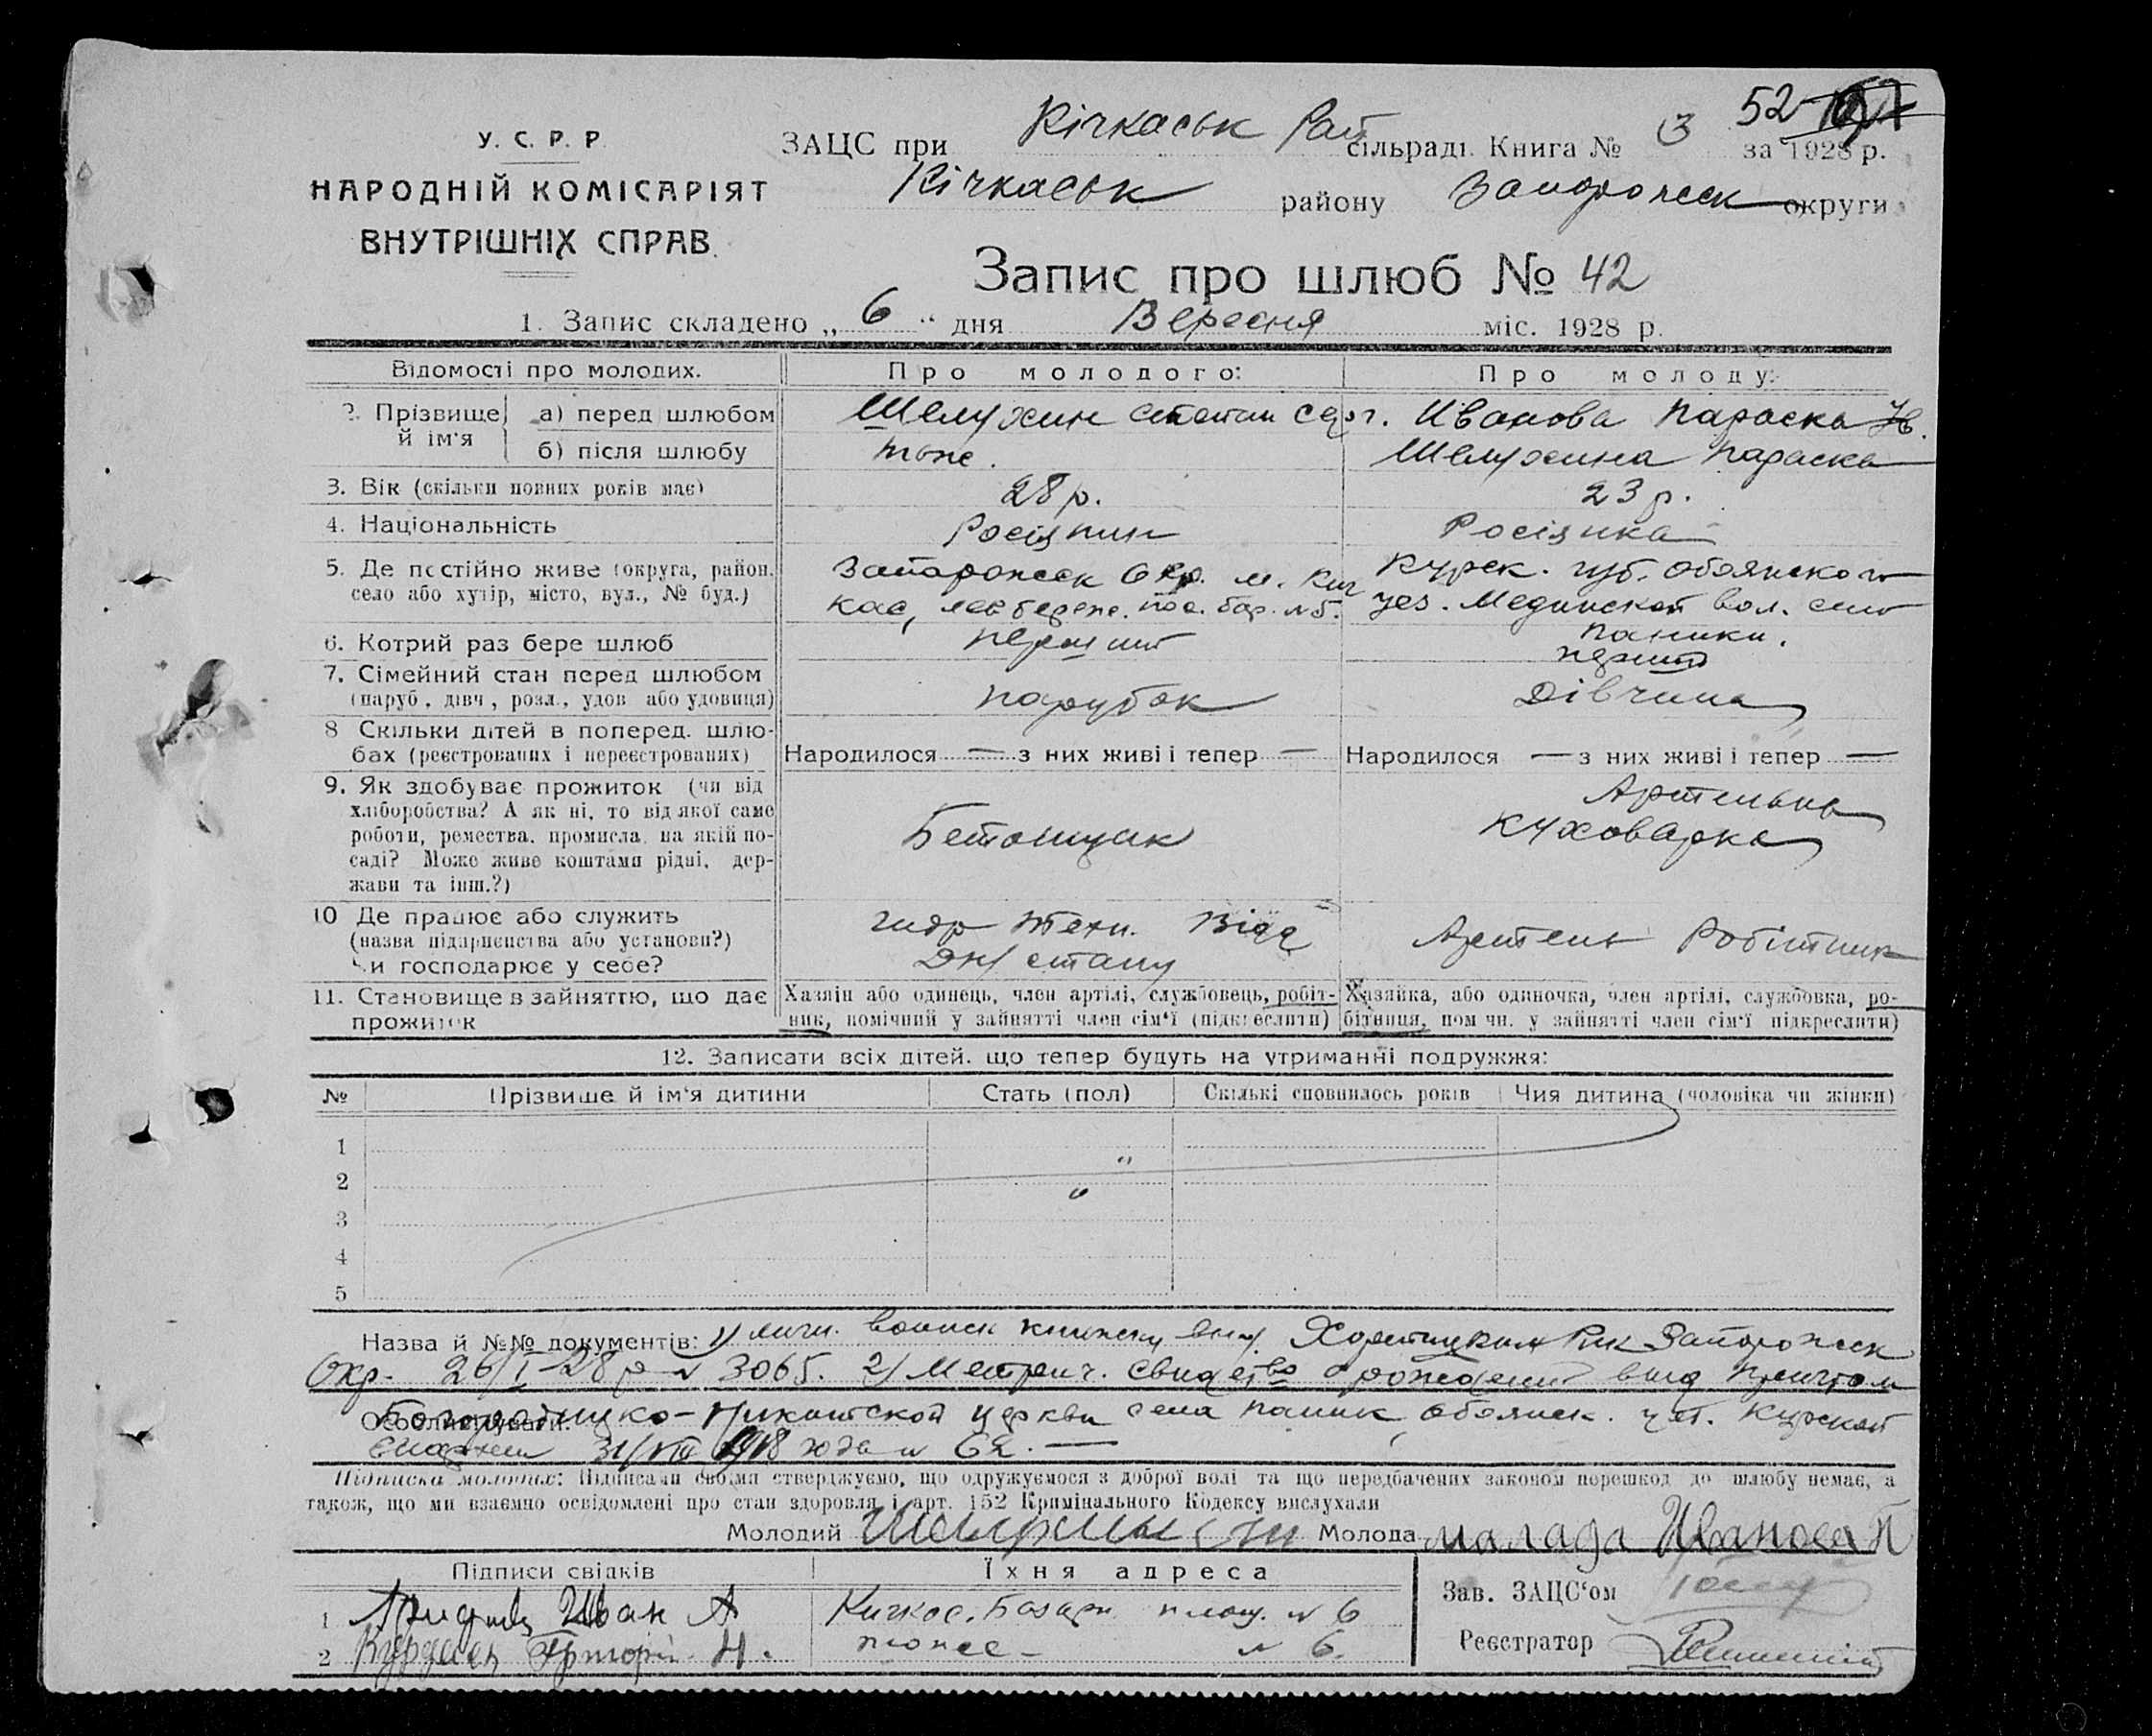 52
У. С. Р. Р.
НАРОДНІЙ КОМІСАРІЯТ
ВНУТРІШНІХ СПРАВ.
ЗАЦС при Кічкаськ Рай сільраді. Книга № 3 за 1928 р.
Кічкаськ району Запорожск округи
Запис про шлюб № 42
1. Запис складено „ 6 “ дня Вересня міс. 1928 р.
Відомості про молодих. Про молодого: Про молоду:
2. Прізвище й ім'я а) перед шлюбом Шелухин Степан Серг. Иванова Параска
б) після шлюбу тоже. Шелухина Параска
3. Вік (скільки повних років має) 28 р. 23 р.
4. Національність Росіянин Росіянка
5. Де постійно живе (округа, район, Запорожск Окр. м. Кич Курск. губ. Обоянского
село або хутір, місто, вул., № буд.) кас, лев береж. пос. бар. №5. уез. Мединской вол. село
Паники.
6. Котрий раз бере шлюб перший перший
7. Сімейний стан перед шлюбом
(паруб., дівч., розл., удов. або удовиця) парубок Дівчина
8 Скільки дітей в поперед. шлю-
бах (реєстрованих і нереєстрованих) Народилося — з них живі і тепер — Народилося — з них живі і тепер —
9. Як здобуває прожиток (чи від Артельна
хліборобства? А як ні, то від якої саме
роботи, ремества, промисла, на якій по- Бетонщик Куховарка
саді? Може живе коштами рідні, дер-
жави та інш.?)
10 Де працює або служить гидр техн. Відд Артель Робітник
(назва підприємства або установи?)
Чи господарює у себе? Дн/стану
11. Становище в зайняттю, що дає Хазяїн або одинець, член артілі, службовець, робіт- Хазяйка, або одиночка, член артілі, службовка, ро-
прожиток ник, помічний у зайнятті член сім'ї (підкреслити) бітниця, пом чн. у зайнятті член сім'ї підкреслити)
12. Записати всіх дітей, що тепер будуть на утриманні подружжя:
№ Прізвище й ім'я дитини Стать (пол) Скількі сповнилось років Чия дитина (чоловіка чи жінки)
1
2
3
4
5
Назва й №№ документів: 1) личн. воинск книжки выд. Хортицким Рик Запорожск
Окр. 26/I-28 р № 3065. 2) Метрич. свидетво о рождении выд Причтом
Особливі уваги: Богородицко- церкви села Паник, Обоянск. у. Курской
епархии 31/VIII 1918 года № 62. —
Підписка молодих: Підписами своїми стверджуємо, що одружуємося з доброї волі та що передбачених законом перешкод до шлюбу немає, а
також, що ми взаємно освідомлені про стан здоровля і арт. 152 Кримінального Кодексу вислухали
Молодий Молода малада Иванова П
Підписи свідків Їхня адреса
1 Иван А Кичкас. Базарн площ. № 6
2 Григорій Н. тоже - № 6.
Зав. ЗАЦС'ом
Реєстратор